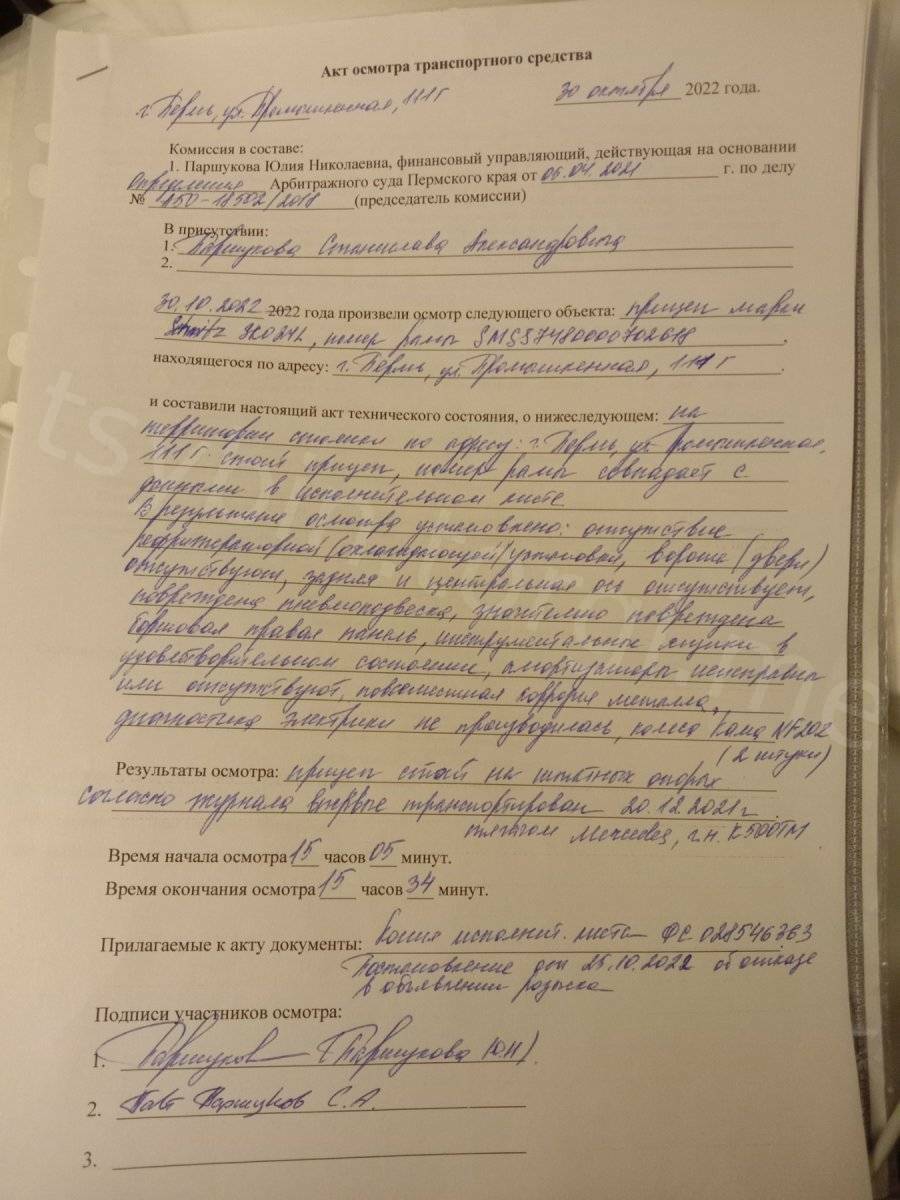 Акт осмотра транспортного средства
г. Пермь, ул. Промышленная, 111 г 30 октября 2022 года.
Комиссия в составе:
1. Паршукова Юлия Николаевна, финансовый управляющий, действующая на основании
Определения Арбитражного суда Пермского края от 06.04.2021 г. по делу
№ А50-18502/2018 (председатель комиссии)
В присутствии:
1. Паршукова Станислава Александровича
2.
30.10.2022 2022 года произвели осмотр следующего объекта: прицеп марки
номер рамы
находящегося по адресу: г. Пермь, ул. Промышленная, 111 г
и составили настоящий акт технического состояния, о нижеследующем: на
территории стоянки по адресу: г. Пермь, ул. Промышленная,
111 г. стоит прицеп, номер рамы совпадает с
данными в исполнительном листе
В результате осмотра установлено: отсутствие
рефрижераторной (охлаждающей) установки, ворота (двери)
отсутствуют, задняя и центральная ось отсутствует,
повреждена пневмоподвеска, значительно повреждена
бортовая правая панель, инструментальные ящики в
удовлетворительном состоянии, амортизаторы неисправны
или отсутствуют, повсеместная коррозия металла,
диагностика электрики не производилась, колеса Кама NF202
(2 штуки)
Результаты осмотра: прицеп стоит на штатных опорах
согласно журнала впервые транспортирован 20.12.2021 г
тягачом Mercedes, г.н. К500ТМ
Время начала осмотра 15 часов 05 минут.
Время окончания осмотра 15 часов 34 минут.
Прилагаемые к акту документы: Копия исполнит. листа ФС 028546363
Постановление от 25.10.2022 об отказе
в объявлении розыска
Подписи участников осмотра:
1. Паршукова (Паршукова Ю.Н)
2. Паршуков С.А.
3.